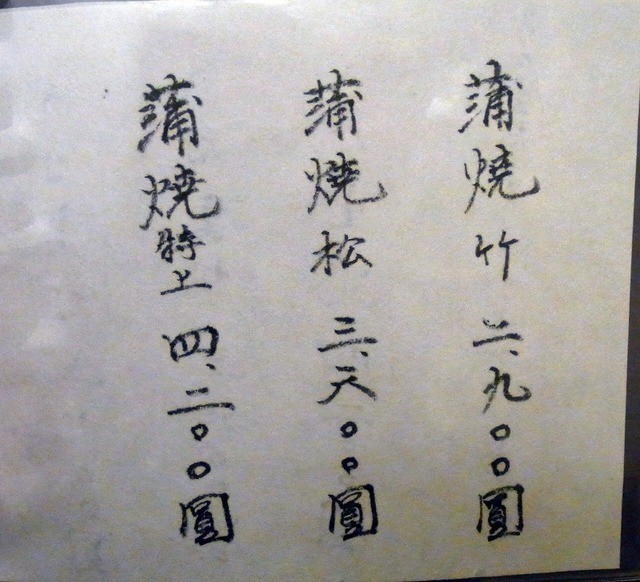 蒲焼竹 二、九〇〇圓
蒲焼松 三、六〇〇圓
蒲焼特上 四、二〇〇圓